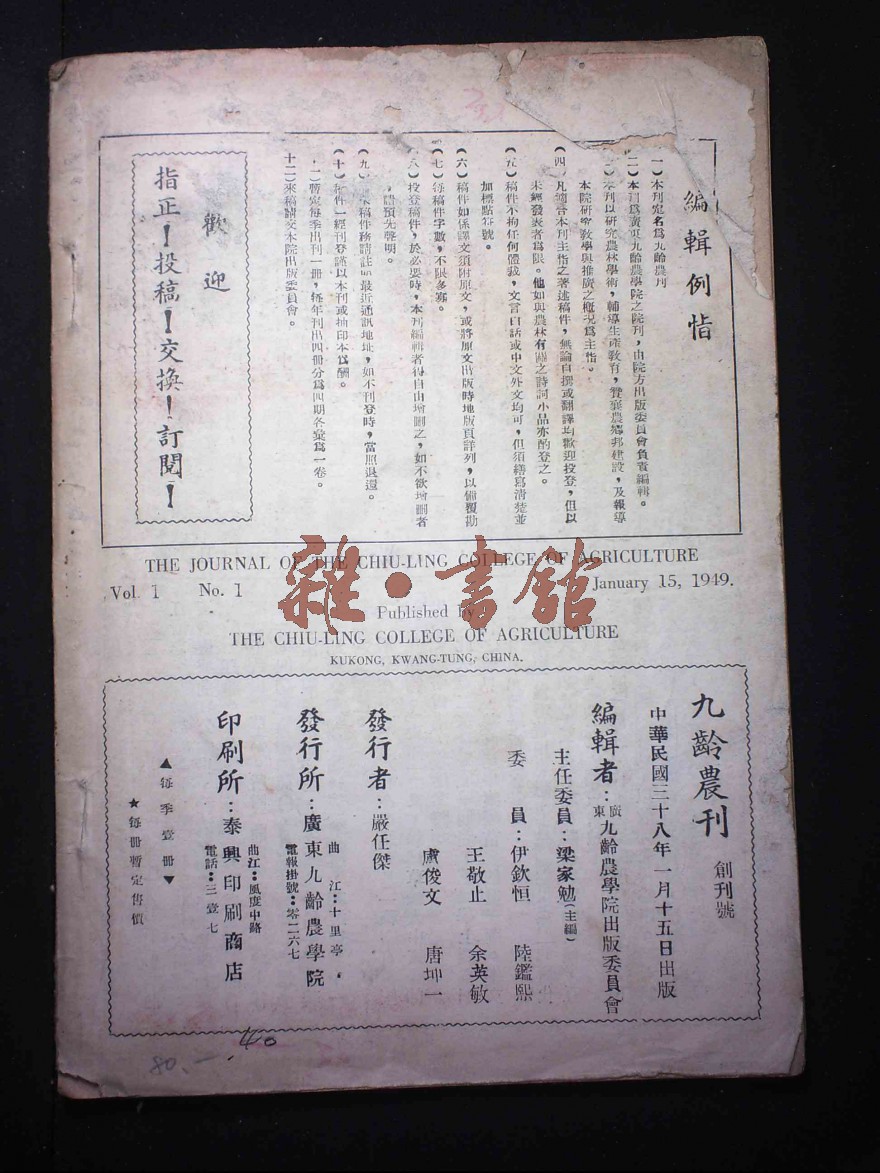 編輯例恉
一）本刊定名爲九齡農刊
二）本刊爲廣東九齡農學院之院刊，由院方出版委員會負責編輯。
）本刊以研究農林學術，輔導生產敎育，贊襄農鄉邦建設，及報導
本院研究敎學與推廣之槪況爲主恉。
（四）凡適合本刊主恉之著述稿件，無論自撰或翻譯均歡迎投登，但以
未經發表者爲限。他如與農林有關之詩詞小品亦酌登之。
（五）稿件不拘任何體裁，文言白話或中文外文均可，但須繕寫清楚並
加標點符號。
（六）稿件如係譯文須附原文，或將原文出版時地版頁詳列，以備覆勘
（七）每稿件字數，不限多寡。
（八）投登稿件，於必要時，本刊編輯者得自由增刪之，如不欲增刪者
，請預先聲明。
（九）來稿件務請註明最近通訊地址，如不刊登時，當照退還。
（十）稿件一經刊登謹以本刊或抽印本爲酬。
十一）暫定每季出刊一册，每年刊出四册分爲四期各彙爲一卷。
十二）來稿請交本院出版委員會。
歡迎
指正！投稿！交換！訂閱！
THE JOURNAL OF THE CHIU-LING COLLEGE OF AGRICULTURE
Vol. 1 No. 1 January 15, 1949.
Published by
THE CHIU-LING COLLEGE OF AGRICULTURE
KUKONG, KWANG-TUNG, CHINA.
雜·書館
九齡農刊 創刊號
中華民國三十八年一月十五日出版
編輯者：廣東九齡農學院出版委員會
主任委員：梁家勉（主編）
委員：伊欽恒 陸鑑熙
王敬止 余英敏
盧俊文 唐坤一
發行者：嚴任傑
發行所：廣東九齡農學院
曲江：十里亭，
電報掛號：零二六七
印刷所：泰興印刷商店
曲江：風度中路
電話：三壹七
▲每季壹册▼
★每册暫定售價
80.—